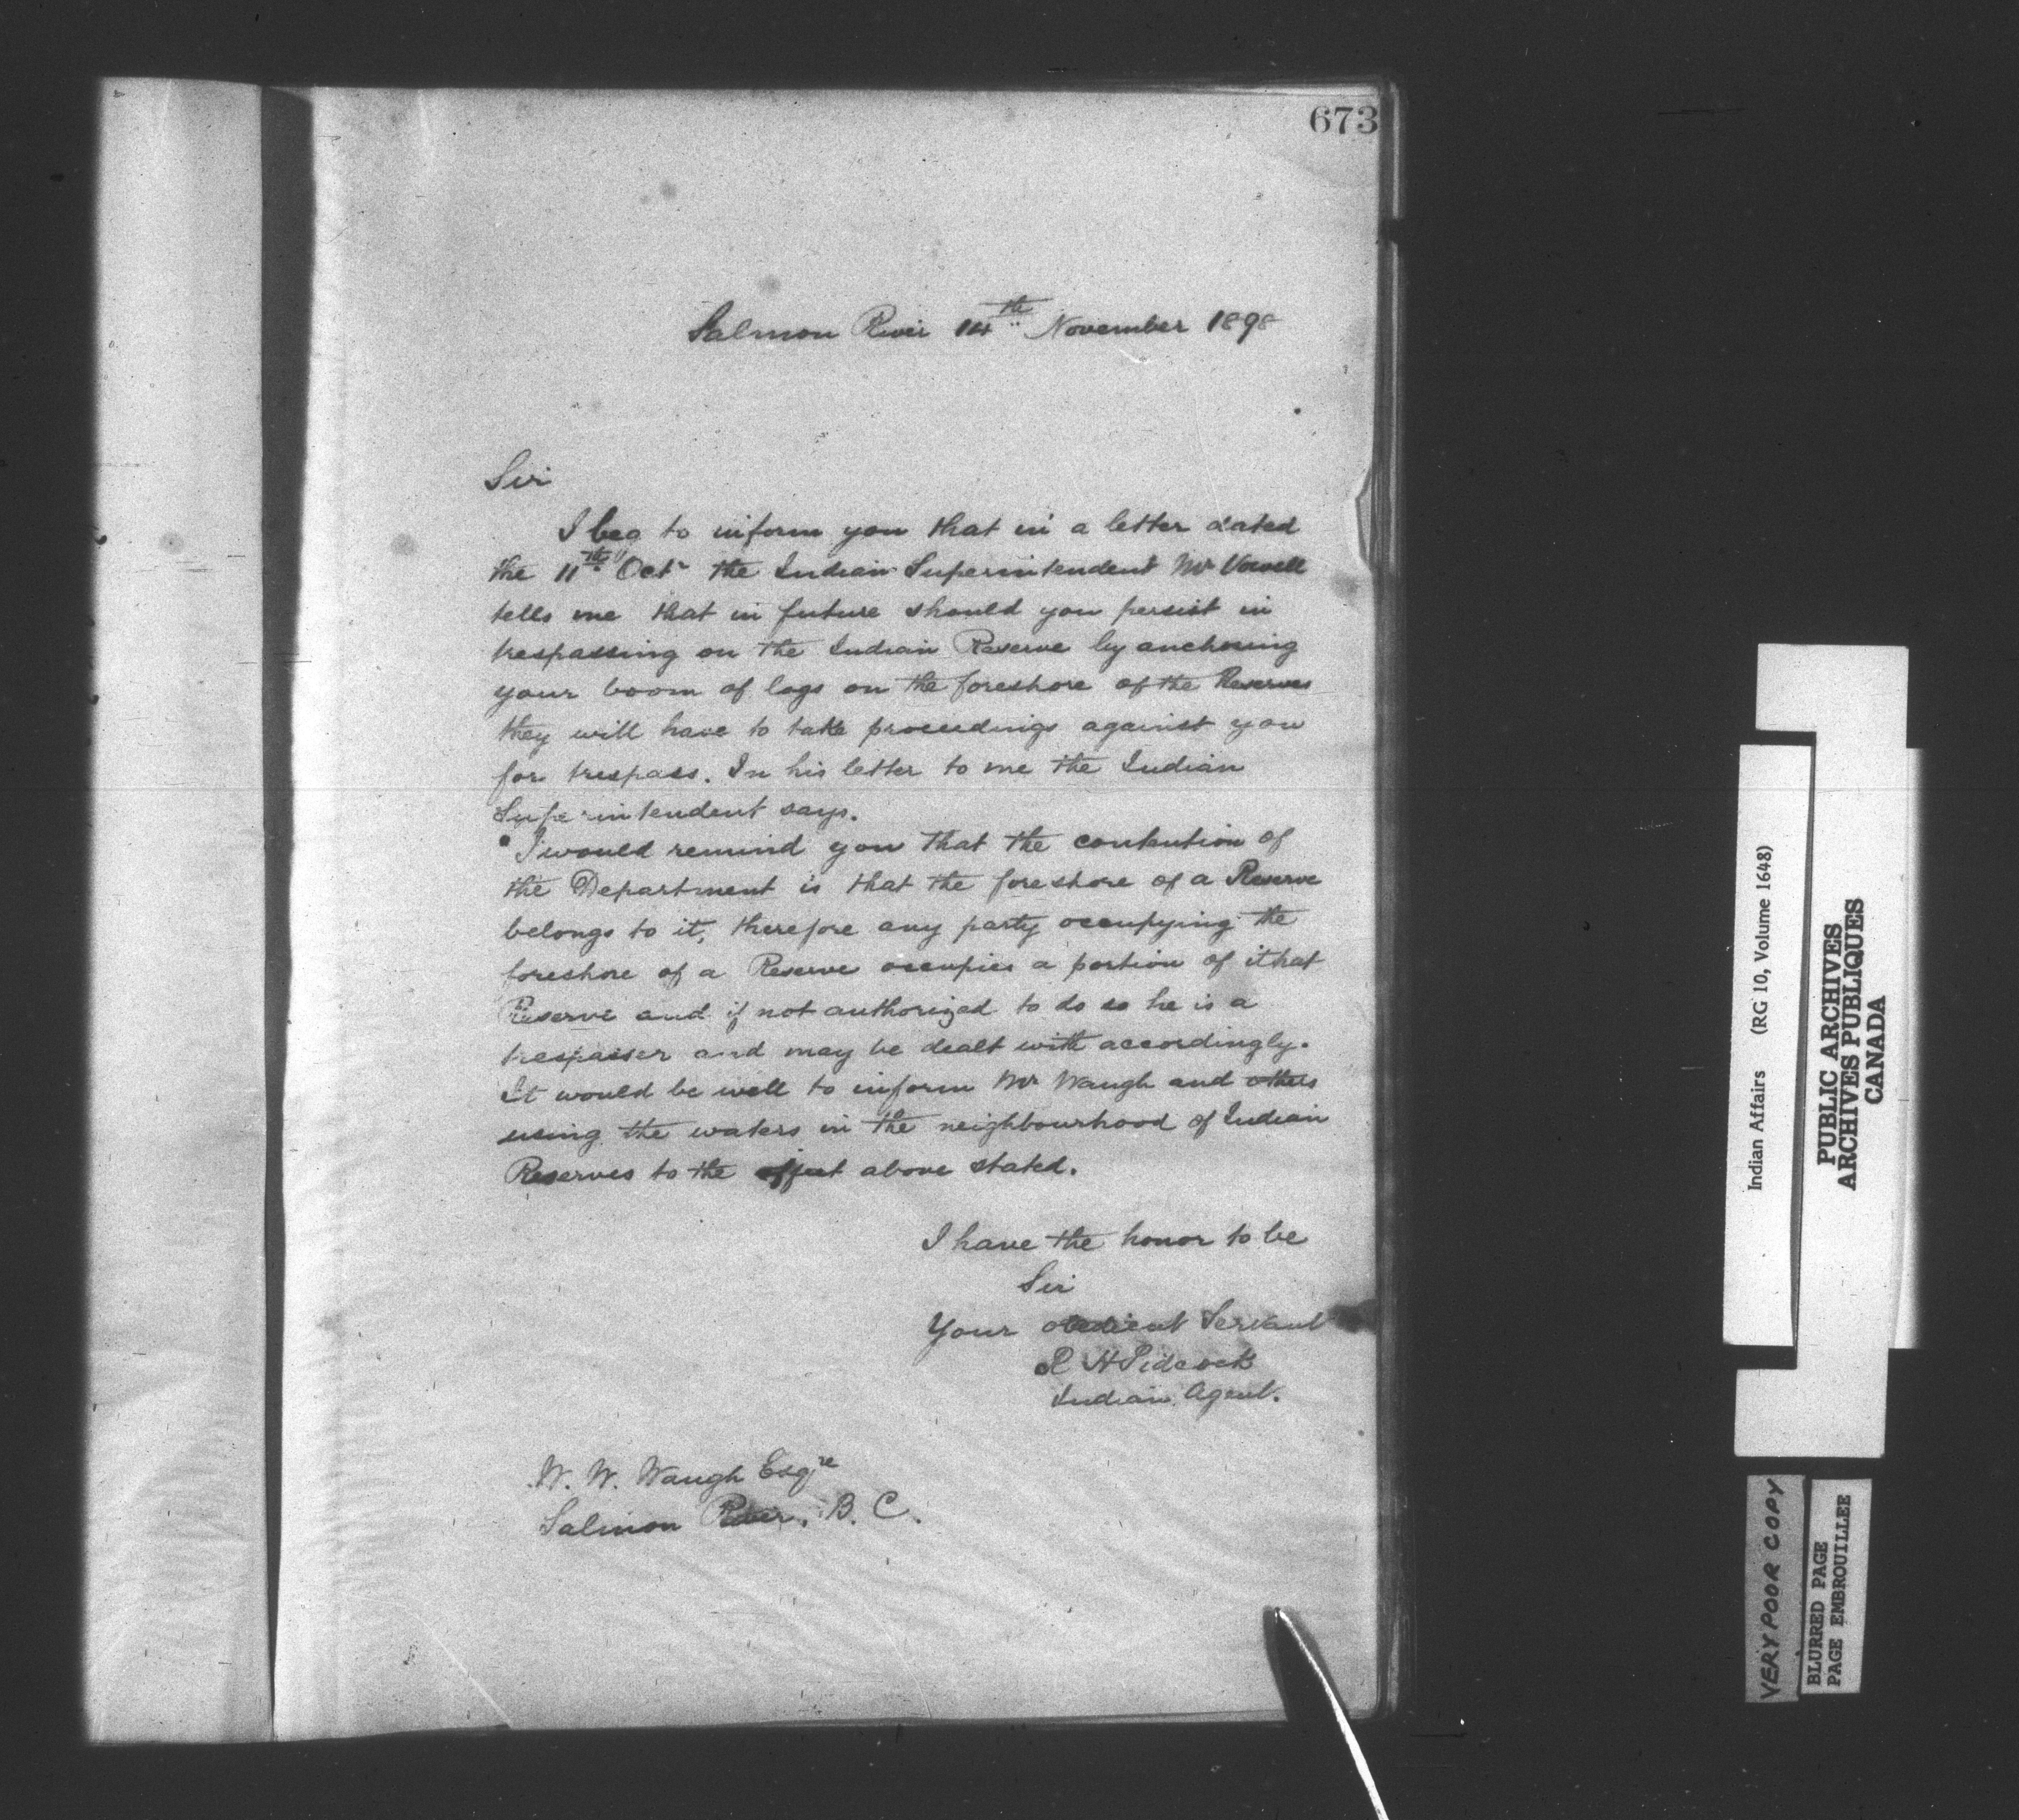 673
Salmon River 14th November 1898
Sir
I beg to inform you that in a letter dated
the 11th Octr the Indian Superintendent Mr Vowell
tells me that in future should you persist in
trespassing on the Indian Reserve by anchoring
your boom of logs on the foreshore of the Reserves
they will have to take proceedings against you
for trespass. In his letter to me the Indian
Superintendent says.
"I would remind you that the contention of
the Department is that the foreshore of a Reserve
belongs to it, therefore any party occupying the
foreshore of a Reserve occupies a portion of that
Reserve and if not authorized to do so he is a
trespasser and may be dealt with accordingly.
It would be well to inform Mr Waugh and others
using the waters in the neighbourhood of Indian
Reserves to the effect above stated.
I have the honor to be
Sir
Your obedient Servant
R H Pidcock
Indian Agent.
W. W. Waugh Esqre
Salmon River, B. C.
Indian Affairs (RG 10, Volume 1648)
PUBLIC ARCHIVES
ARCHIVES PUBLIQUES
CANADA
VERY POOR COPY
BLURRED PAGE
PAGE EMBROUILLEE